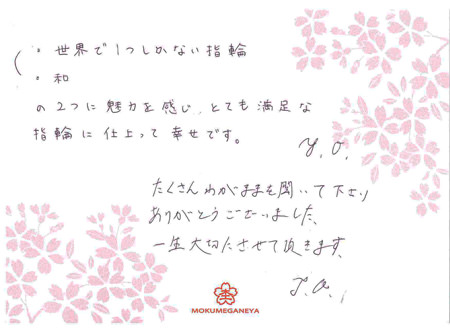 ・世界で1つしかない指輪
・和
の2つに魅力を感じ、とても満足な
指輪に仕上って幸せです。
Y.O.
たくさんわがままを聞いて下さり
ありがとうございました。
一生大切にさせて頂きます。
T.O.
MOKUMEGANEYA